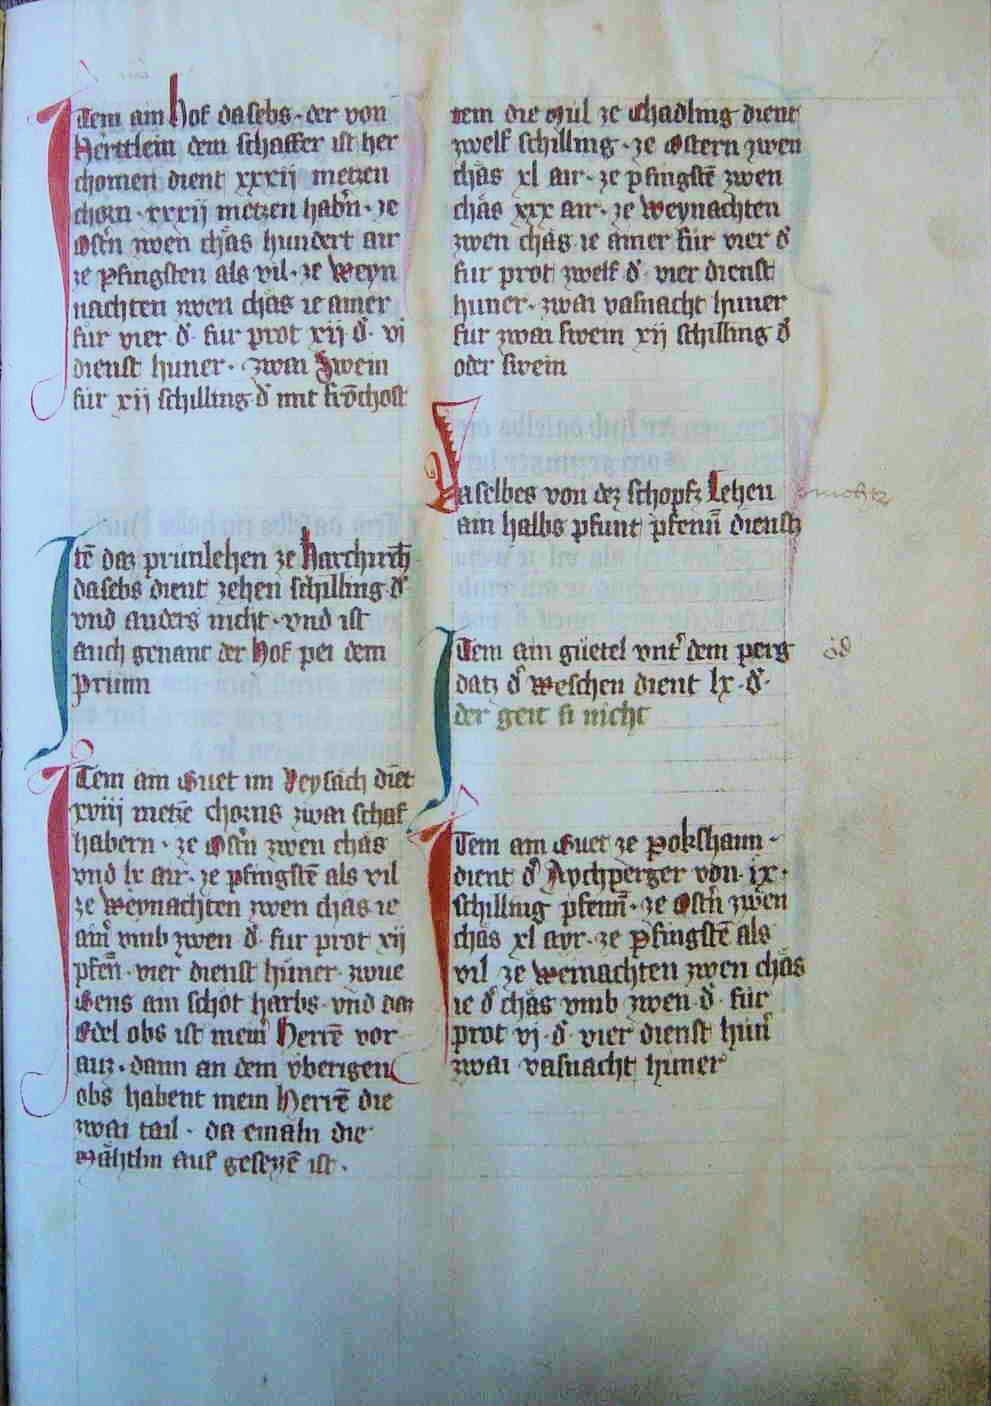 Item ain hof dasebs · der von
Herttlein dem schaffer ist her
chomen dient xxxij metzen
chorn · xxxij metzen habˀn · ze
Ostˀn zwen chaͤs hundert air
ze Pfingsten als vil · ze Weyn
nachten zwen chaͤs ie ainer
fuͤr vier d · fur prot xij d · vj
dienst huner · zwai Swein
fuͤr xij schilling d mit
Itē daz prunlehen ze
dasebs dient zehen schilling d
vnd anders nicht · vnd ist
auch genant der Hof pei dem
Prunn
Item ain Guet im diēt
xviij metzē chorns zwai schaf
habern · ze Ostˀn zwen chaͤs
vnd lx air · ze pfingstē als vil
ze Weynachten zwen chaͤs ie
ainˀ vmb zwen d · fur prot xij
pfen̄ · vier dienst huͤner · zwue
Gens ain schot harbs · vnd daz
Edel obs ist meinˀ Herrē vor
auz · dann an dem vberigen
obs habent mein Herrē die
zwai tail · da emaln die
auf gesezzē ist ·
Item die Muͤl ze Chadling dient
zwelf schilling · ze Ostern zwen
chaͤs xl air · ze pfingstē zwen
chaͤs xxx air · ze Weynachten
zwen chaͤs ie ainer fuͤr vier d
fur prot zwelf d · vier dienst
huner · zwai vasnacht huner
fur zwai swein xij schilling d
oder swein
Daselbes von dez schopfz Lehen
ain halbs pfunt pfenn̄ dienstz
Item ain guͤetel vntˀ dem perg
datz dˀ Weschen dient lx · d ·
der geit si nicht
öd
Item ain Guet ze Pokshann ·
dient dˀ Aychperger von · ix ·
schilling pfenn̄ · ze Ostˀn zwen
chaͤs xl ayr · ze Pfingstē als
vil ze Weinachten zwen chaͤs
ie dˀ chaͤs vmb zwen · d · fuͤr
prot vj · d · vier dienst huͤnˀ
zwai vasnacht huͤner